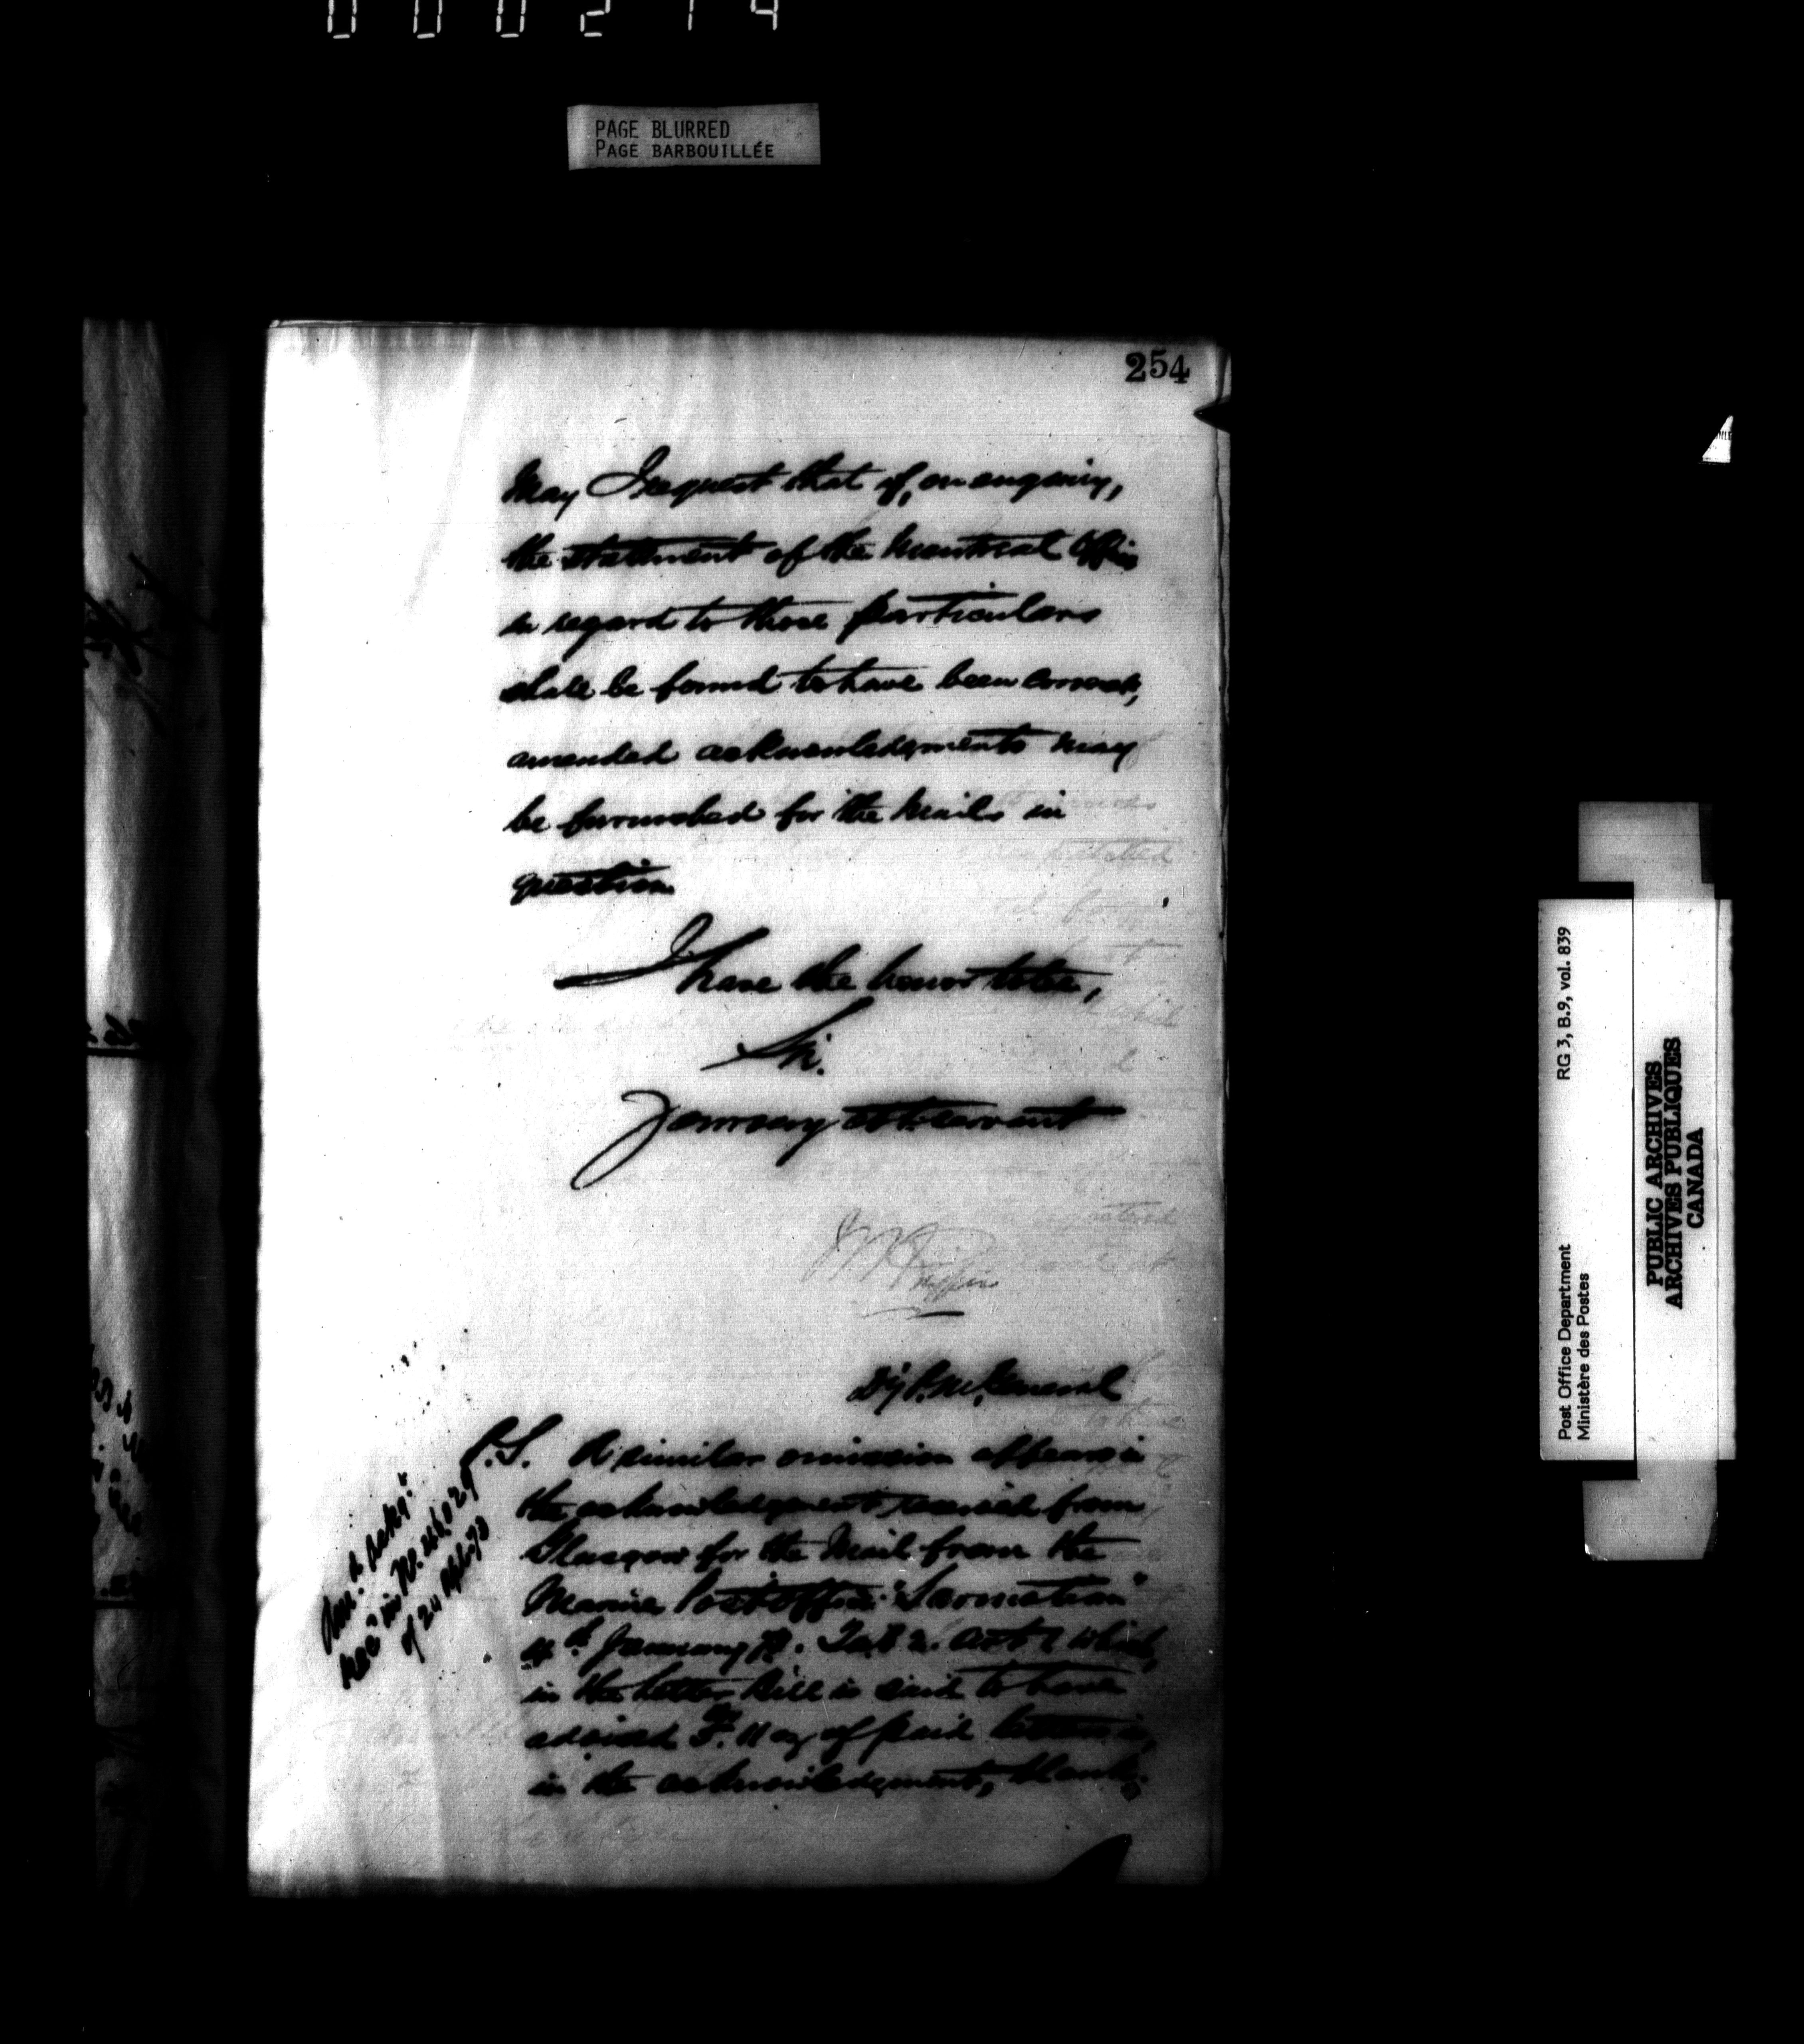 000214
PAGE BLURRED
PAGE BARBOUILLÉE
254
May I request that if, on enquiry,
the statement of the Montreal Office
in regard to those particulars
shall be found to have been correct,
amended acknowledgments may
be furnished for the Mails in
question.
I have the honor to be,
Sir.
Your very obt. servant
W Griffin
Dy P. M. General
P.S. A similar omission appears in
the acknowledgment, received from
Glasgow for the Mail from the
Marine Post Office "Sarmatian"
4th January 78. Tab 2. Art 1 which,
in the letter Bill is said to have
advised oz of paid letters is,
in the acknowledgment, blank.
rec'd in No.
of 24 Apl. 78
RG 3, B.9, vol. 839
Post Office Department
Ministère des Postes
PUBLIC ARCHIVES
ARCHIVES PUBLIQUES
CANADA